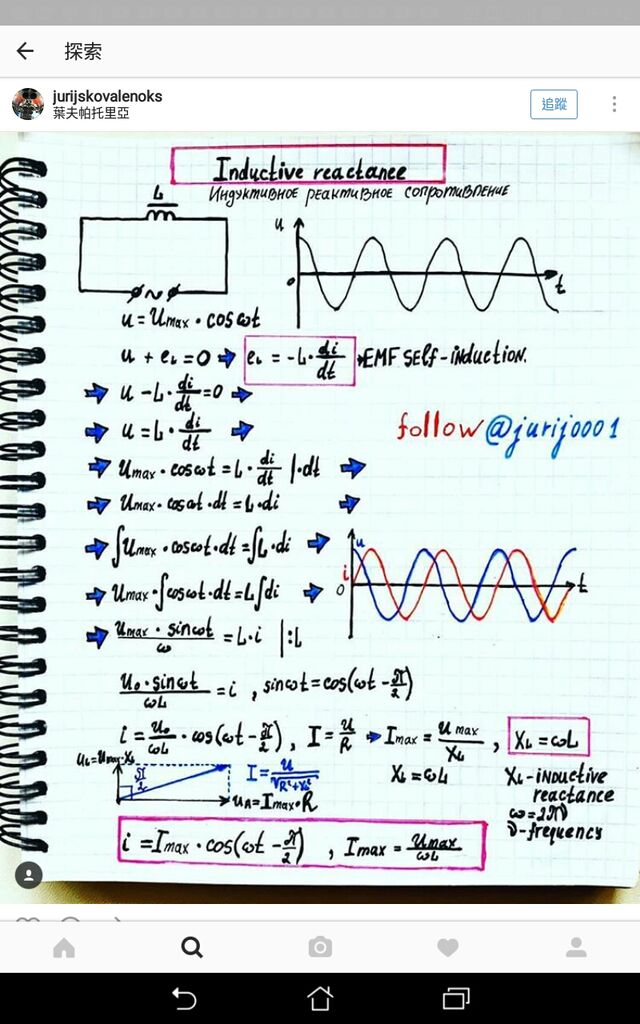 探索
jurijskovalenoks
葉夫帕托里亞
追蹤
Inductive reactance
Индуктивное реактивное сопротивление
L
u
0
t
u = Umax · cosωt
u + eL = 0 → eL = -L · di/dt → EMF self-induction.
→ u - L · di/dt = 0 →
→ u = L · di/dt →
follow @jurij0001
→ Umax · cosωt = L · di/dt | · dt →
→ Umax · cosωt · dt = L · di →
→ ∫Umax · cosωt · dt = ∫L · di →
u
i
0
t
→ Umax · ∫cosωt · dt = L∫di →
→ Umax · sinωt / ω = L · i | :L
U₀ · sinωt / ωL = i , sinωt = cos(ωt - π/2)
i = U₀/ωL · cos(ωt - π/2) , I = U/R → Imax = Umax/XL , XL = ωL
XL = ωL
π/2
I = U/√R²+XL²
UR = Imax · R
XL - inductive
reactance
ω = 2πν
ν - frequency
i = Imax · cos(ωt - π/2) , Imax = Umax/ωL